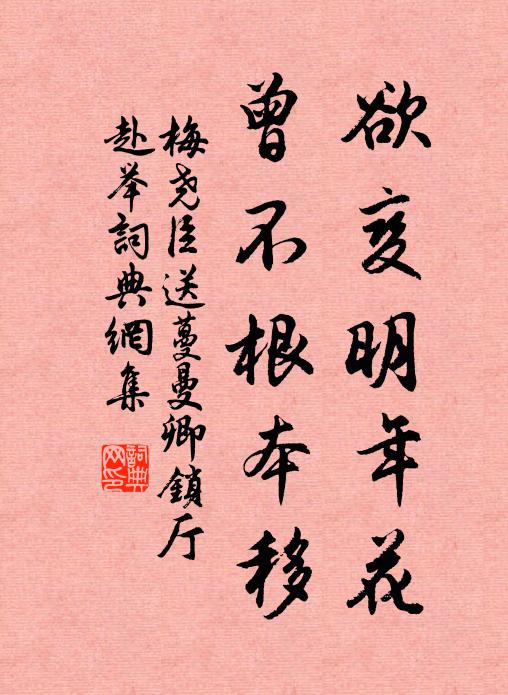 欲变明年花
曾不根本移
梅尧臣送蔓曼卿鎖厅
赴举詞典網集
詞典
网印